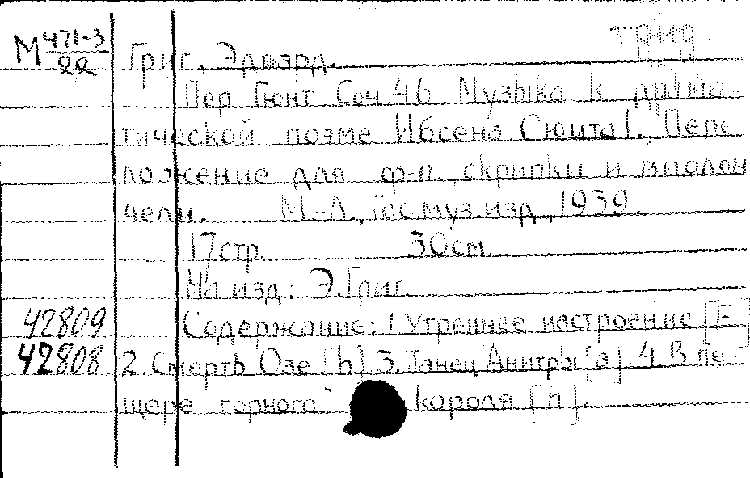 М 471-3
22
трио
Григ, Эдвард.
Пер Гюнт Соч 46 Музыка к драма-
тической поэме Ибсена Сюита I. Пере-
ложение для ф-п., скрипки и виолон
чели. М.-Л., Гос муз. изд., 1939
17стр. 30см
На изд: Э. Григ
42809 Содержание: 1 Утреннее настроение [E]
42808 2. Смерть Озе [h] 3. Танец Анитры [a] 4 В пе-
щере горного короля [h].